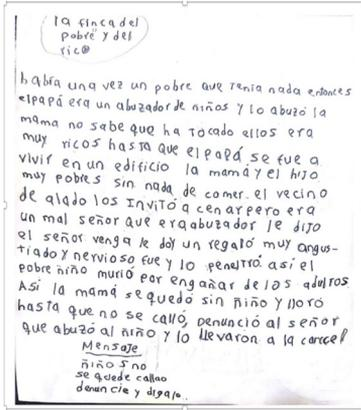 la finca del
pobre y del
rico
había una vez un pobre que Tenia nada entonces
el papá era un abuzador de niños y lo abuzó la
mama no sabe que ha Tocado ellos era
muy ricos hasta que el papá se fue a
vivir en un edificio la mamá y el hijo
muy pobres sin nada de comer. el vecino
de alado los Invitó a cenar pero era
un mal señor que era abuzador le dijo
el señor venga le doy un regaló muy angus-
tiado y nervioso fue y lo penetró. así el
pobre niño murió por engañar de los adultos
Así la mamá se quedó sin niño y lloró
hasta que no se calló, denunció al señor
que abuzó al niño y lo llevaron a la carcel
Mensaje
niños no
se quede callao
denuncie y digalo..